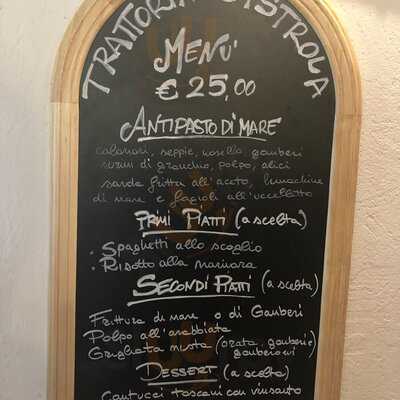 TRATTORIA
MENU'
€ 25,00
ANTIPASTO DI MARE
calamari, seppie, gamberi
surimi di granchio, polpo, alici
sarda fritta all'aceto, lumachine
di mare e fagioli all'uccelletto
PRIMI PIATTI (a scelta)
• Spaghetti allo scoglio
• Risotto alla marinara
SECONDI PIATTI (a scelta)
Frittura di mare o di Gamberi
Polpo all'arrabbiata
Grigliata mista (orata, gamberi e
DESSERT (a scelta)
Cantucci toscani con vinsanto